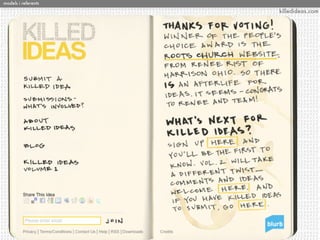 models | referents
killedideas.com
KILLED
IDEAS
SUBMIT A
KILLED IDEA
SUBMISSIONS -
WHAT'S INVOLVED?
ABOUT
KILLED IDEAS
BLOG
KILLED IDEAS
VOLUME 1
Share This Idea
Please enter email
JOIN
Privacy | Terms/Conditions | Contact Us | Help | RSS | Downloads
Credits
THANKS FOR VOTING!
WINNER OF THE PEOPLE'S
CHOICE AWARD IS THE
ROOTS CHURCH WEBSITE,
FROM RENEE RIST OF
HARRISON OHIO. SO THERE
IS AN AFTERLIFE FOR
IDEAS, IT SEEMS - CONGRATS
TO RENEE AND TEAM!
WHAT'S NEXT FOR
KILLED IDEAS?
SIGN UP HERE AND
YOU'LL BE THE FIRST TO
KNOW. VOL. 2 WILL TAKE
A DIFFERENT TWIST...
COMMENTS AND IDEAS
WELCOME HERE, AND
IF YOU HAVE KILLED IDEAS
TO SUBMIT, GO HERE.
blurb